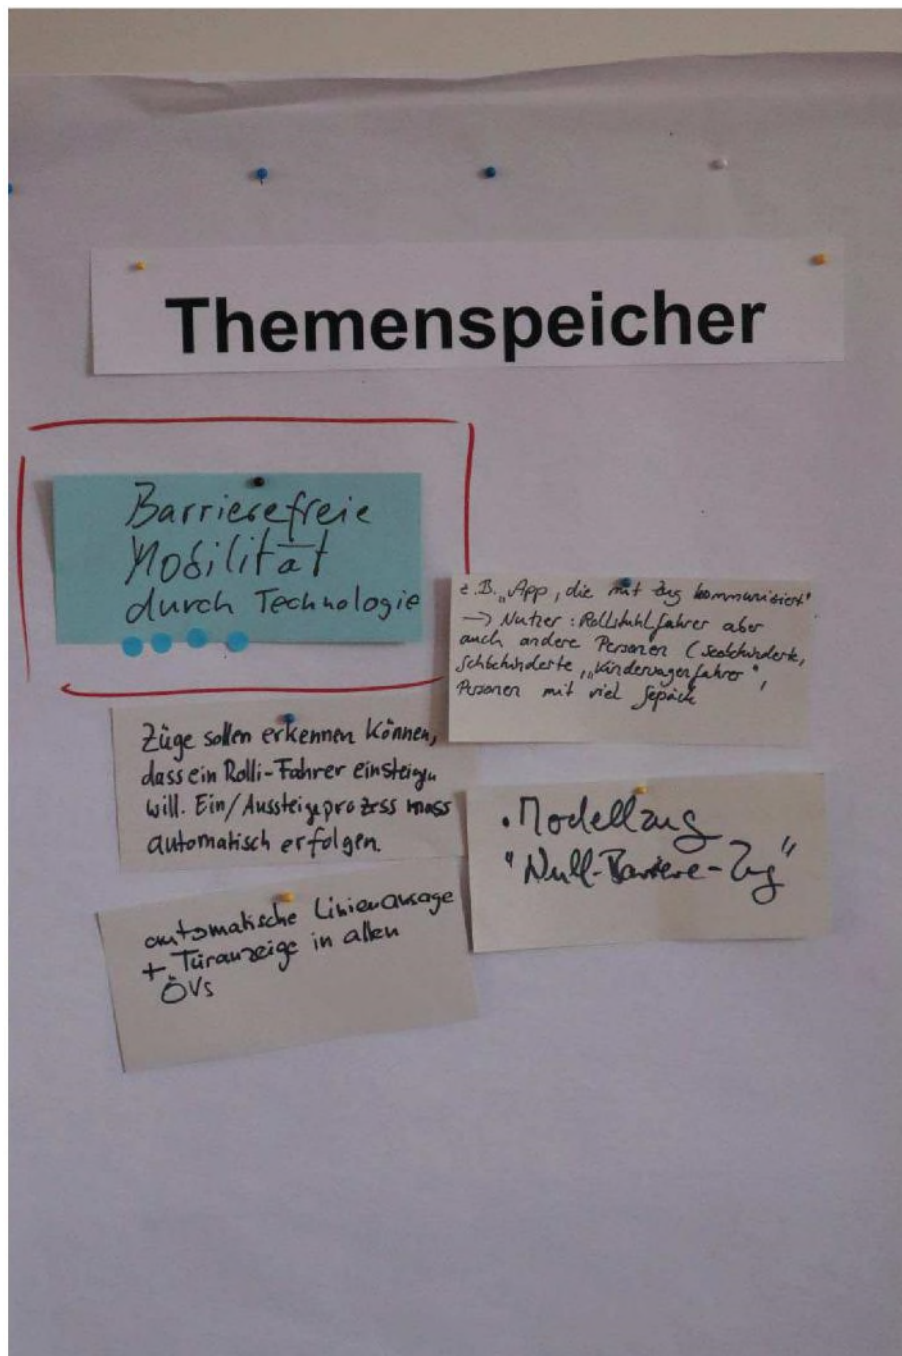 Themenspeicher
Barrierefreie
Mobilität
durch Technologie
z.B. „App, die mit Zug kommuniziert"
→ Nutzer: Rollstuhlfahrer aber
auch andere Personen (Seebehinderte,
„Kinderwagenfahrer",
Personen mit viel Gepäck
Züge sollen erkennen können,
dass ein Rolli-Fahrer einsteigen
will. Ein/Aussteigeprozess muss
automatisch erfolgen.
• Modellzug
"Null-Barriere-Zug"
automatische Linienansage
+ Türanzeige in allen
ÖVs